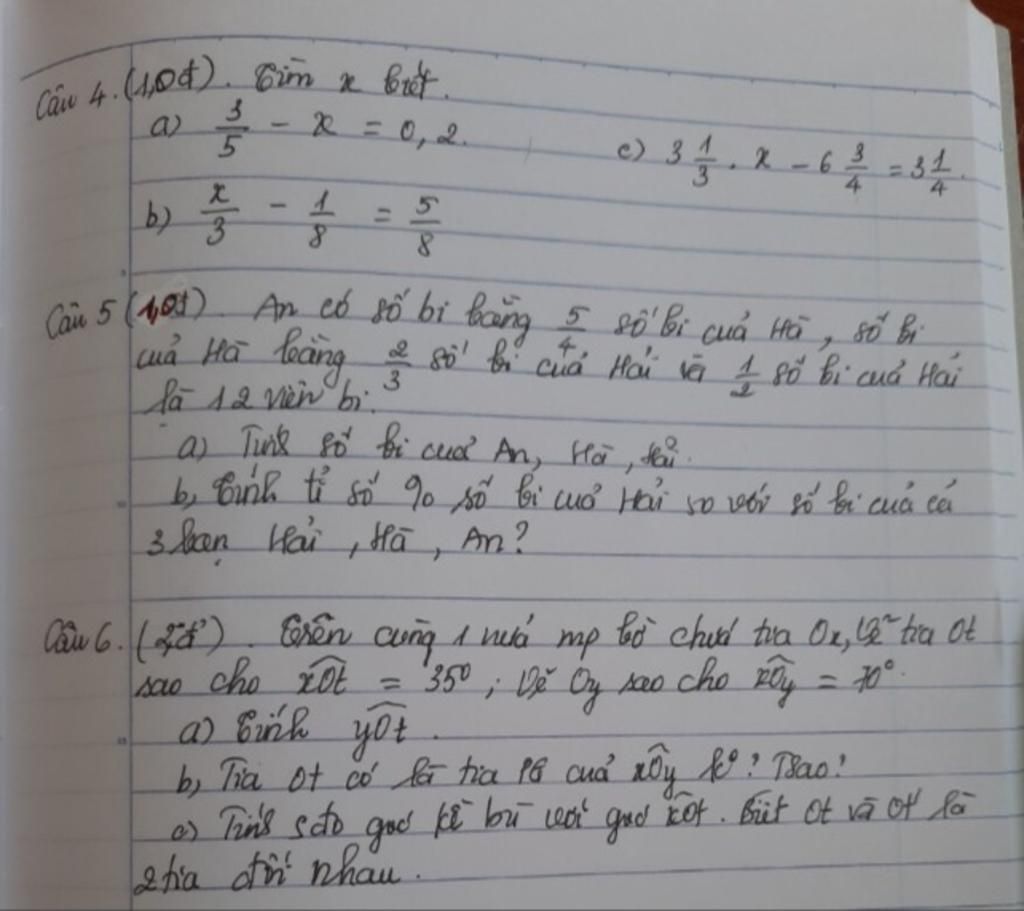 Câu 4. (1,0đ). Tìm x biết.
a) 3/5 - x = 0,2.
c) 3 1/3 . x - 6 3/4 = 3 1/4.
b) x/3 - 1/8 = 5/8
Câu 5 (1,0đ). An có số bi bằng 5/4 số bi của Hà, số bi
của Hà bằng 2/3 số bi của Hải và 1/2 số bi của Hải
là 12 viên bi.
a) Tính số bi của An, Hà, Hải.
b, Tính tỉ số % số bi của Hải so với số bi của cả
3 bạn Hải, Hà, An?
Câu 6. (2,đ). Trên cùng 1 nửa mp bờ chứa tia Ox, Vẽ tia Ot
sao cho xOt = 35°; Vẽ Oy sao cho xOy = 70°.
a) Tính yOt.
b, Tia Ot có là tia PG của xOy k°? Tsao?
c) Tính sđo góc kề bù với góc xOt. Biết Ot và Ot' là
2 tia đối nhau.